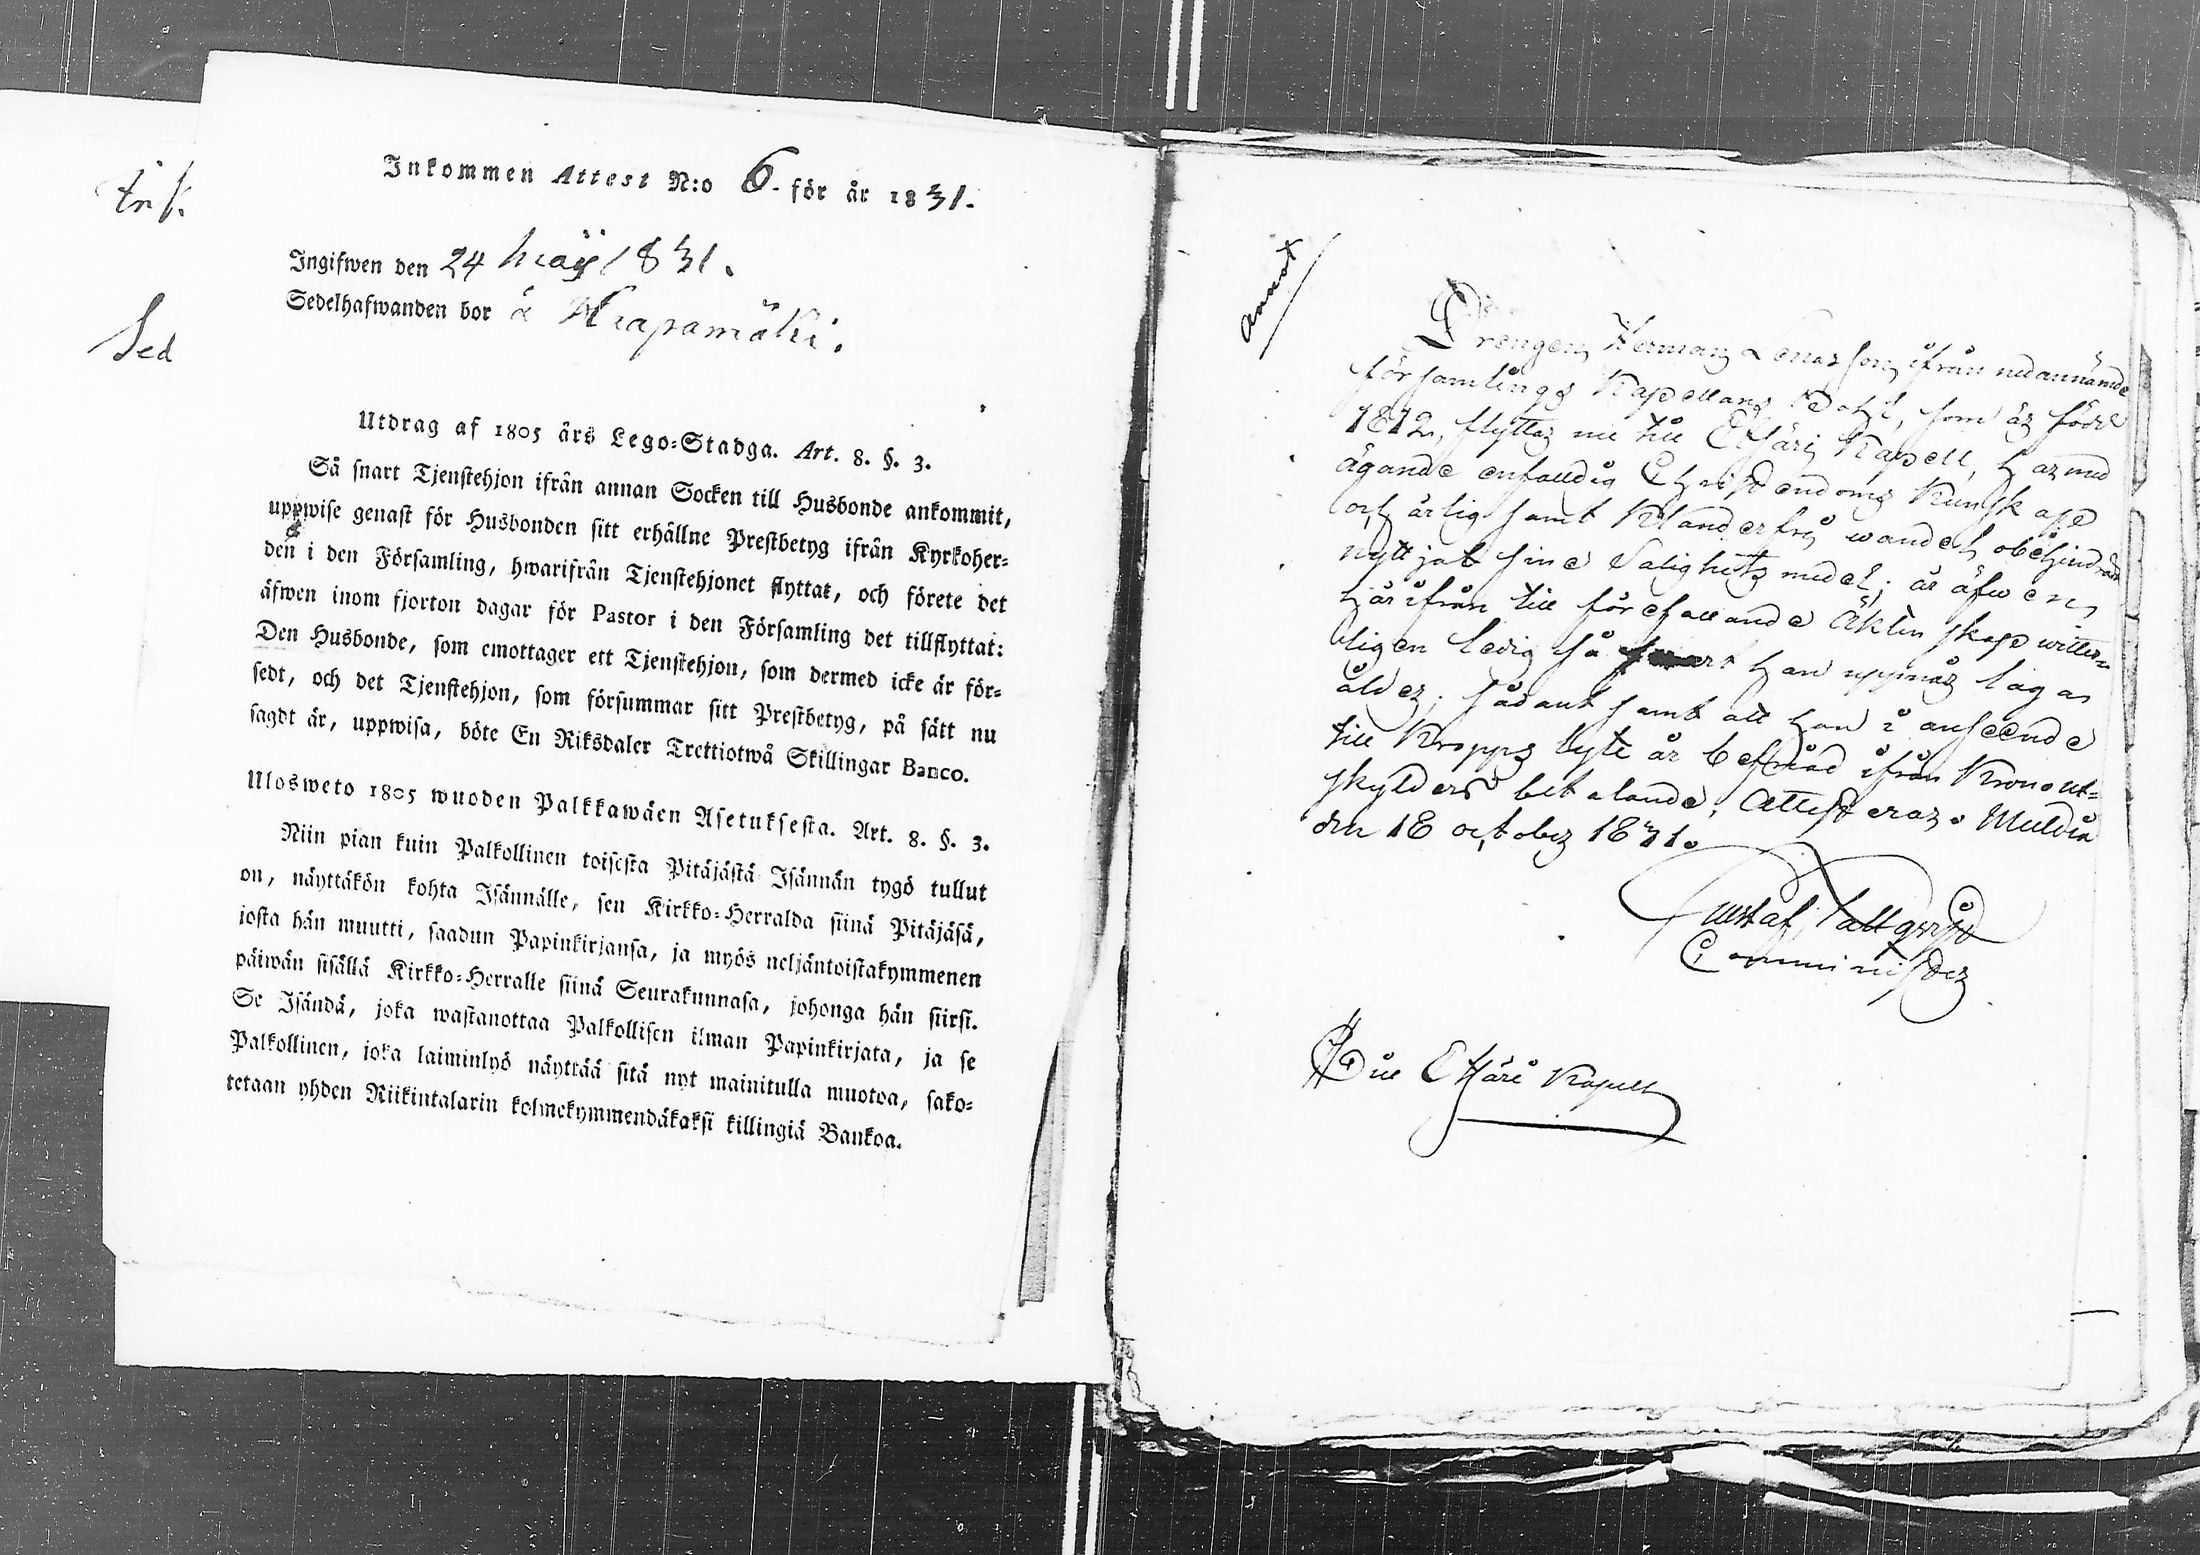 Ink.
Sed
Inkommen Attest N:o 6. för år 1831.
Ingifwen den 24 Maij 1831.
Sedelhafwanden bor å Haapamäki.
Utdrag af 1805 års Lego-Stadga. Art. 8. §. 3.
Så snart Tjenstehjon ifrån annan Socken till Husbonde ankommit,
uppwise genast för Husbonden sitt erhållne Prestbetyg ifrån Kyrkoher-
den i den Församling, hwarifrån Tjenstehjonet flyttat, och förete det
äfwen inom fjorton dagar för Pastor i den Församling det tillflyttat:
Den Husbonde, som emottager ett Tjenstehjon, som dermed icke är för-
sedt, och det Tjenstehjon, som försummar sitt Prestbetyg, på sätt nu
sagdt är, uppwisa, böte En Riksdaler Trettiotwå Skillingar Banco.
Ulosweto 1805 wuoden Palkkawäen Asetuksesta. Art. 8. §. 3.
Niin pian kuin Palkollinen toisesta Pitäjästä Isännän tygö tullut
on, näyttäkön kohta Isännälle, sen Kirkko-Herralda siinä Pitäjäsä,
josta hän muutti, saadun Papinkirjansa, ja myös neljäntoistakymmenen
päiwän sisällä Kirkko-Herralle siinä Seurakunnasa, johonga hän siirsi.
Se Isändä, joka wastanottaa Palkollisen ilman Papinkirjata, ja se
Palkollinen, joka laiminlyö näyttää sitä nyt mainitulla muotoa, sako-
tetaan yhden Riikintalarin kolmekymmendäkaksi killingiä Bankoa.
Annot
Drengen Herman Enarsson ifrån nedannämde
församlings Kapellans Bohl, som är född
1812, flyttar nu till Etseri Kapell, har med
ägande enfalldig Christendoms Kunskape
och ärlig samt Klanderfri wandel obehindradt
nyttjat sine Salighets medel; är äfwen
härifrån till förefallande Äktenskap witter-
ligen ledig så snart han uppnår lagas
ålder; sådant samt att han i anseende
till Kropps lyte är befriad ifrån Krono ut-
skylders betalande, Attesteras. Muldia
den 18 october 1831.
Gustaf Tallqvist
Comminister
Till Etsäri Kapell